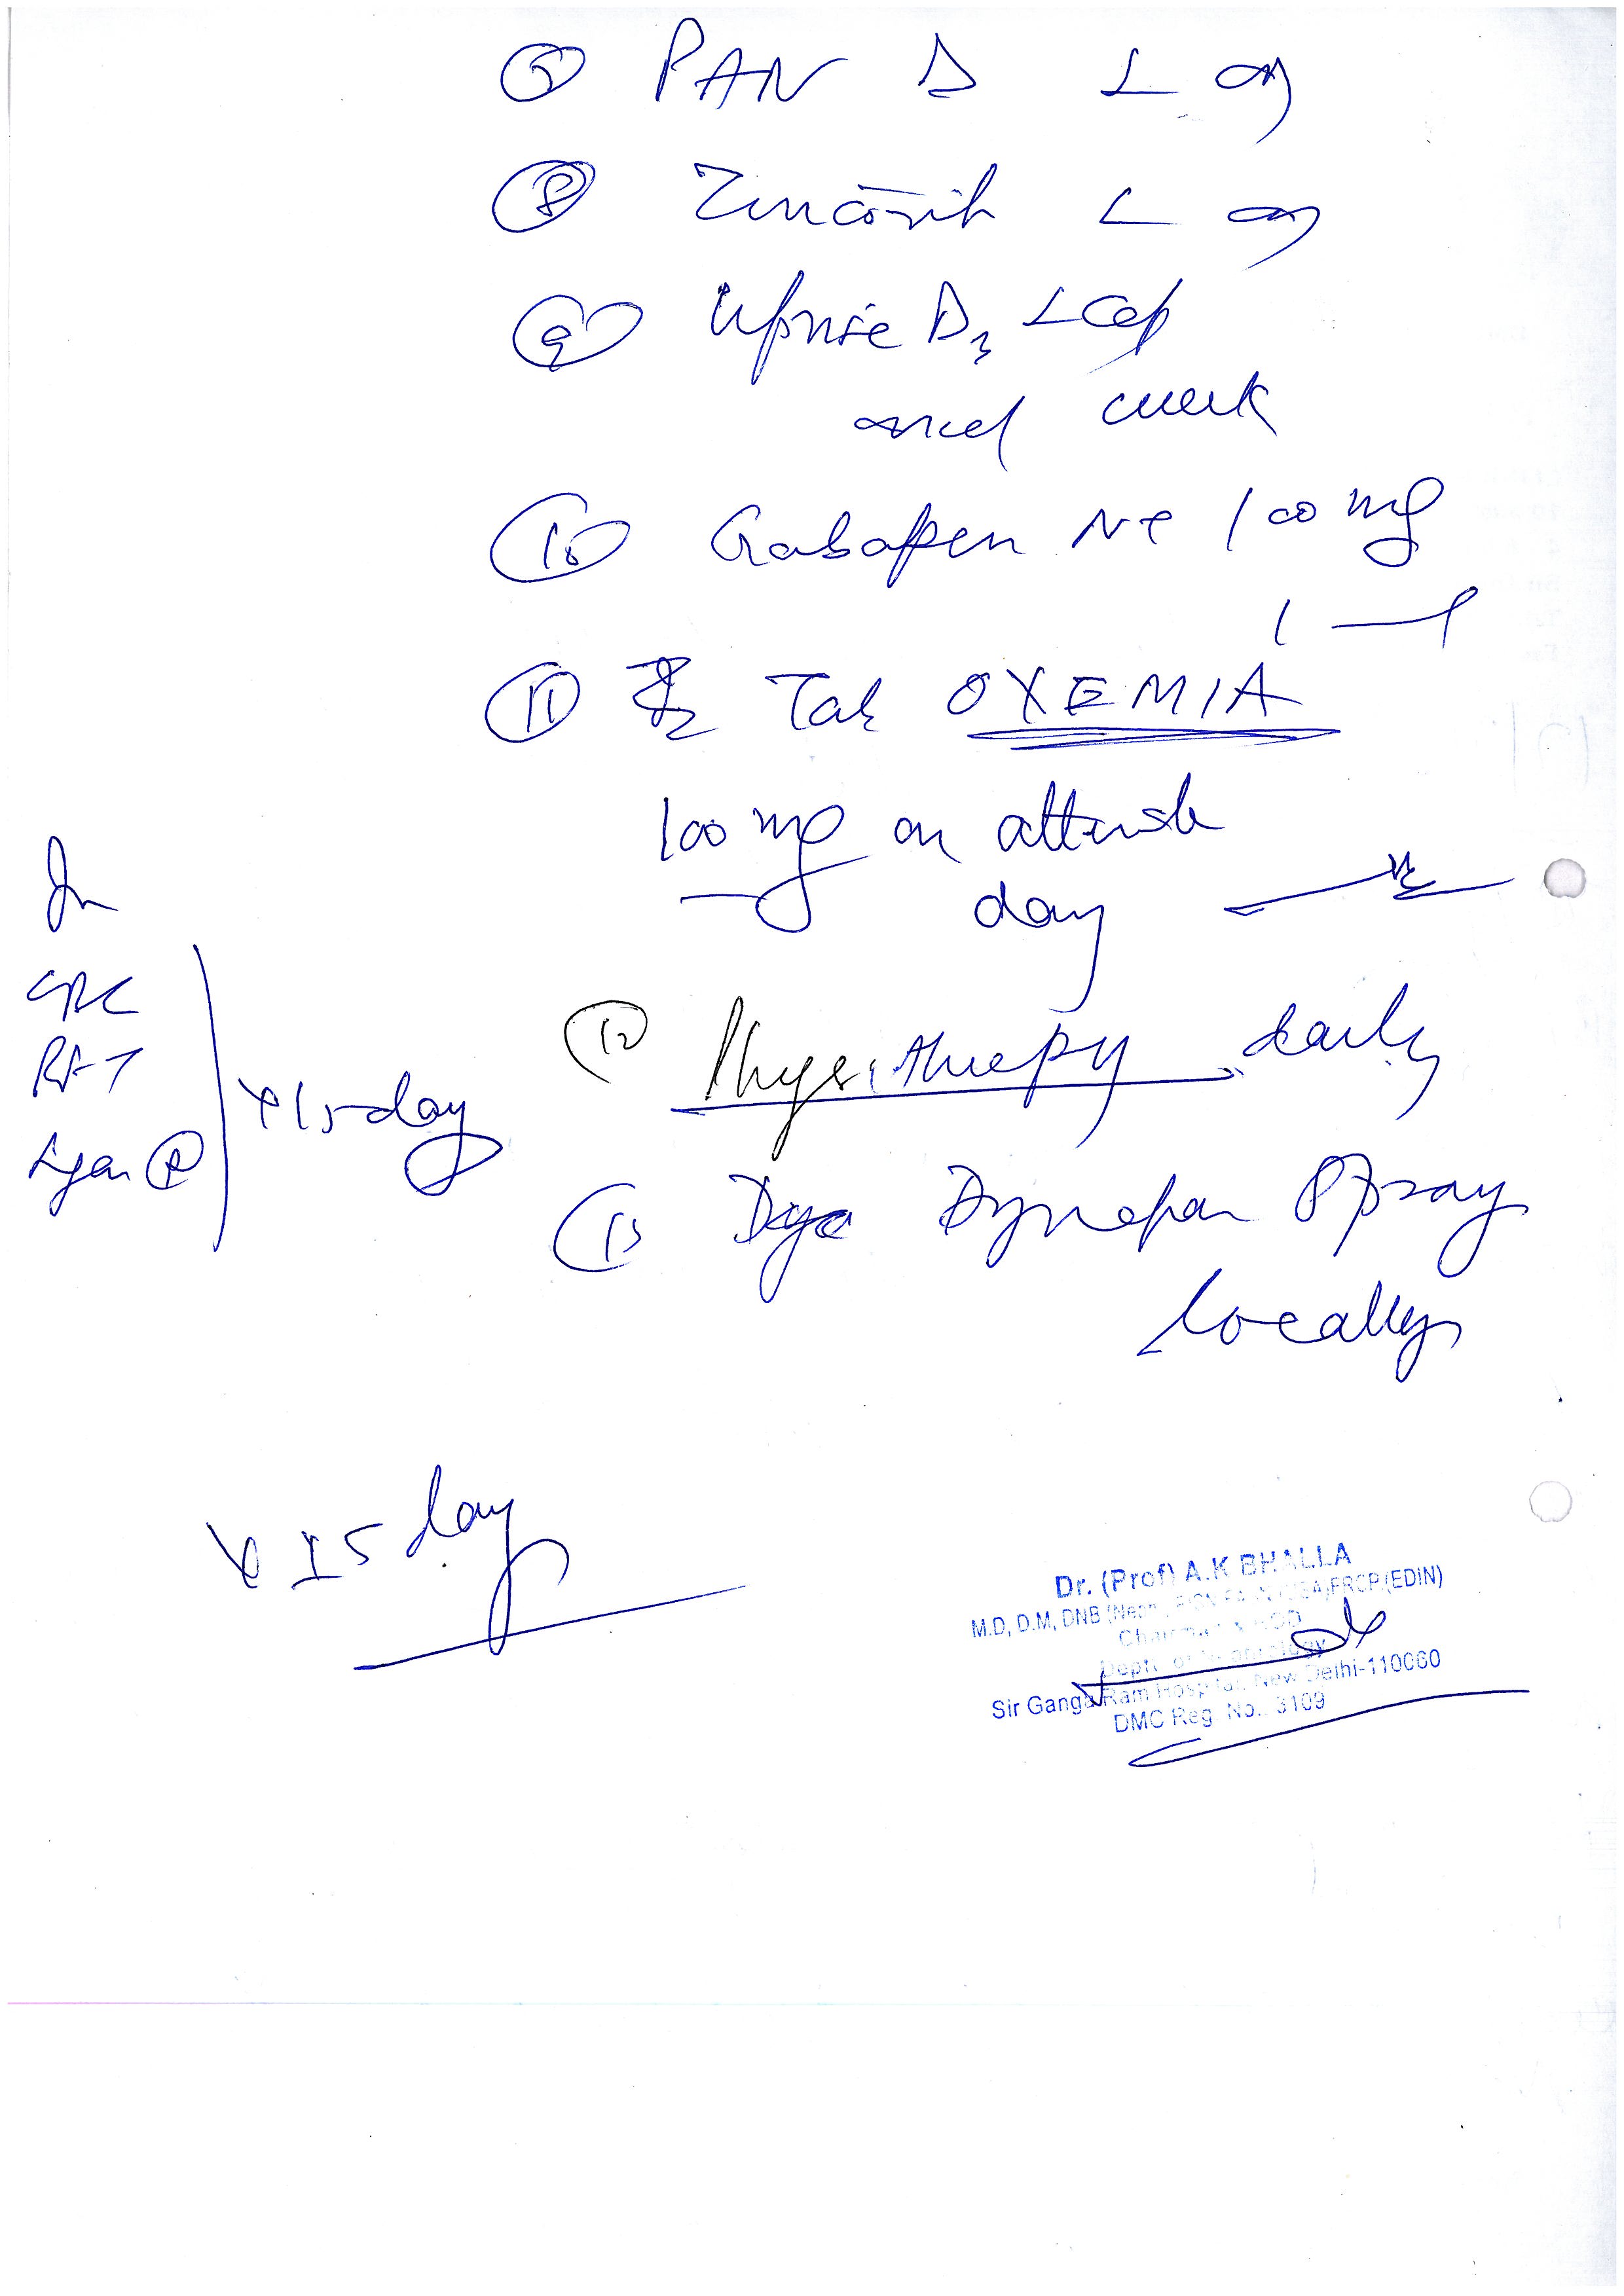 PAN D 1 OD
⑧ Zinconit 1 OD
⑨ Uprise D3 1 Cap
week
⑩ Gabapen NT 100 mg
⑪ Tab OXEMIA
100 mg on alternate
day
CBC
RFT
x 15 day
⑫ Physiotherepy daily
⑬ Dynapar Spray
locally
x 15 day
Dr. (Prof) A.K BHALLA
M.D, D.M, DNB FRCP (EDIN)
Chairman & HOD
Deptt. of Nephrology
Sir Ganga Ram Hospital, New Delhi-110060
DMC Reg No.. 3109